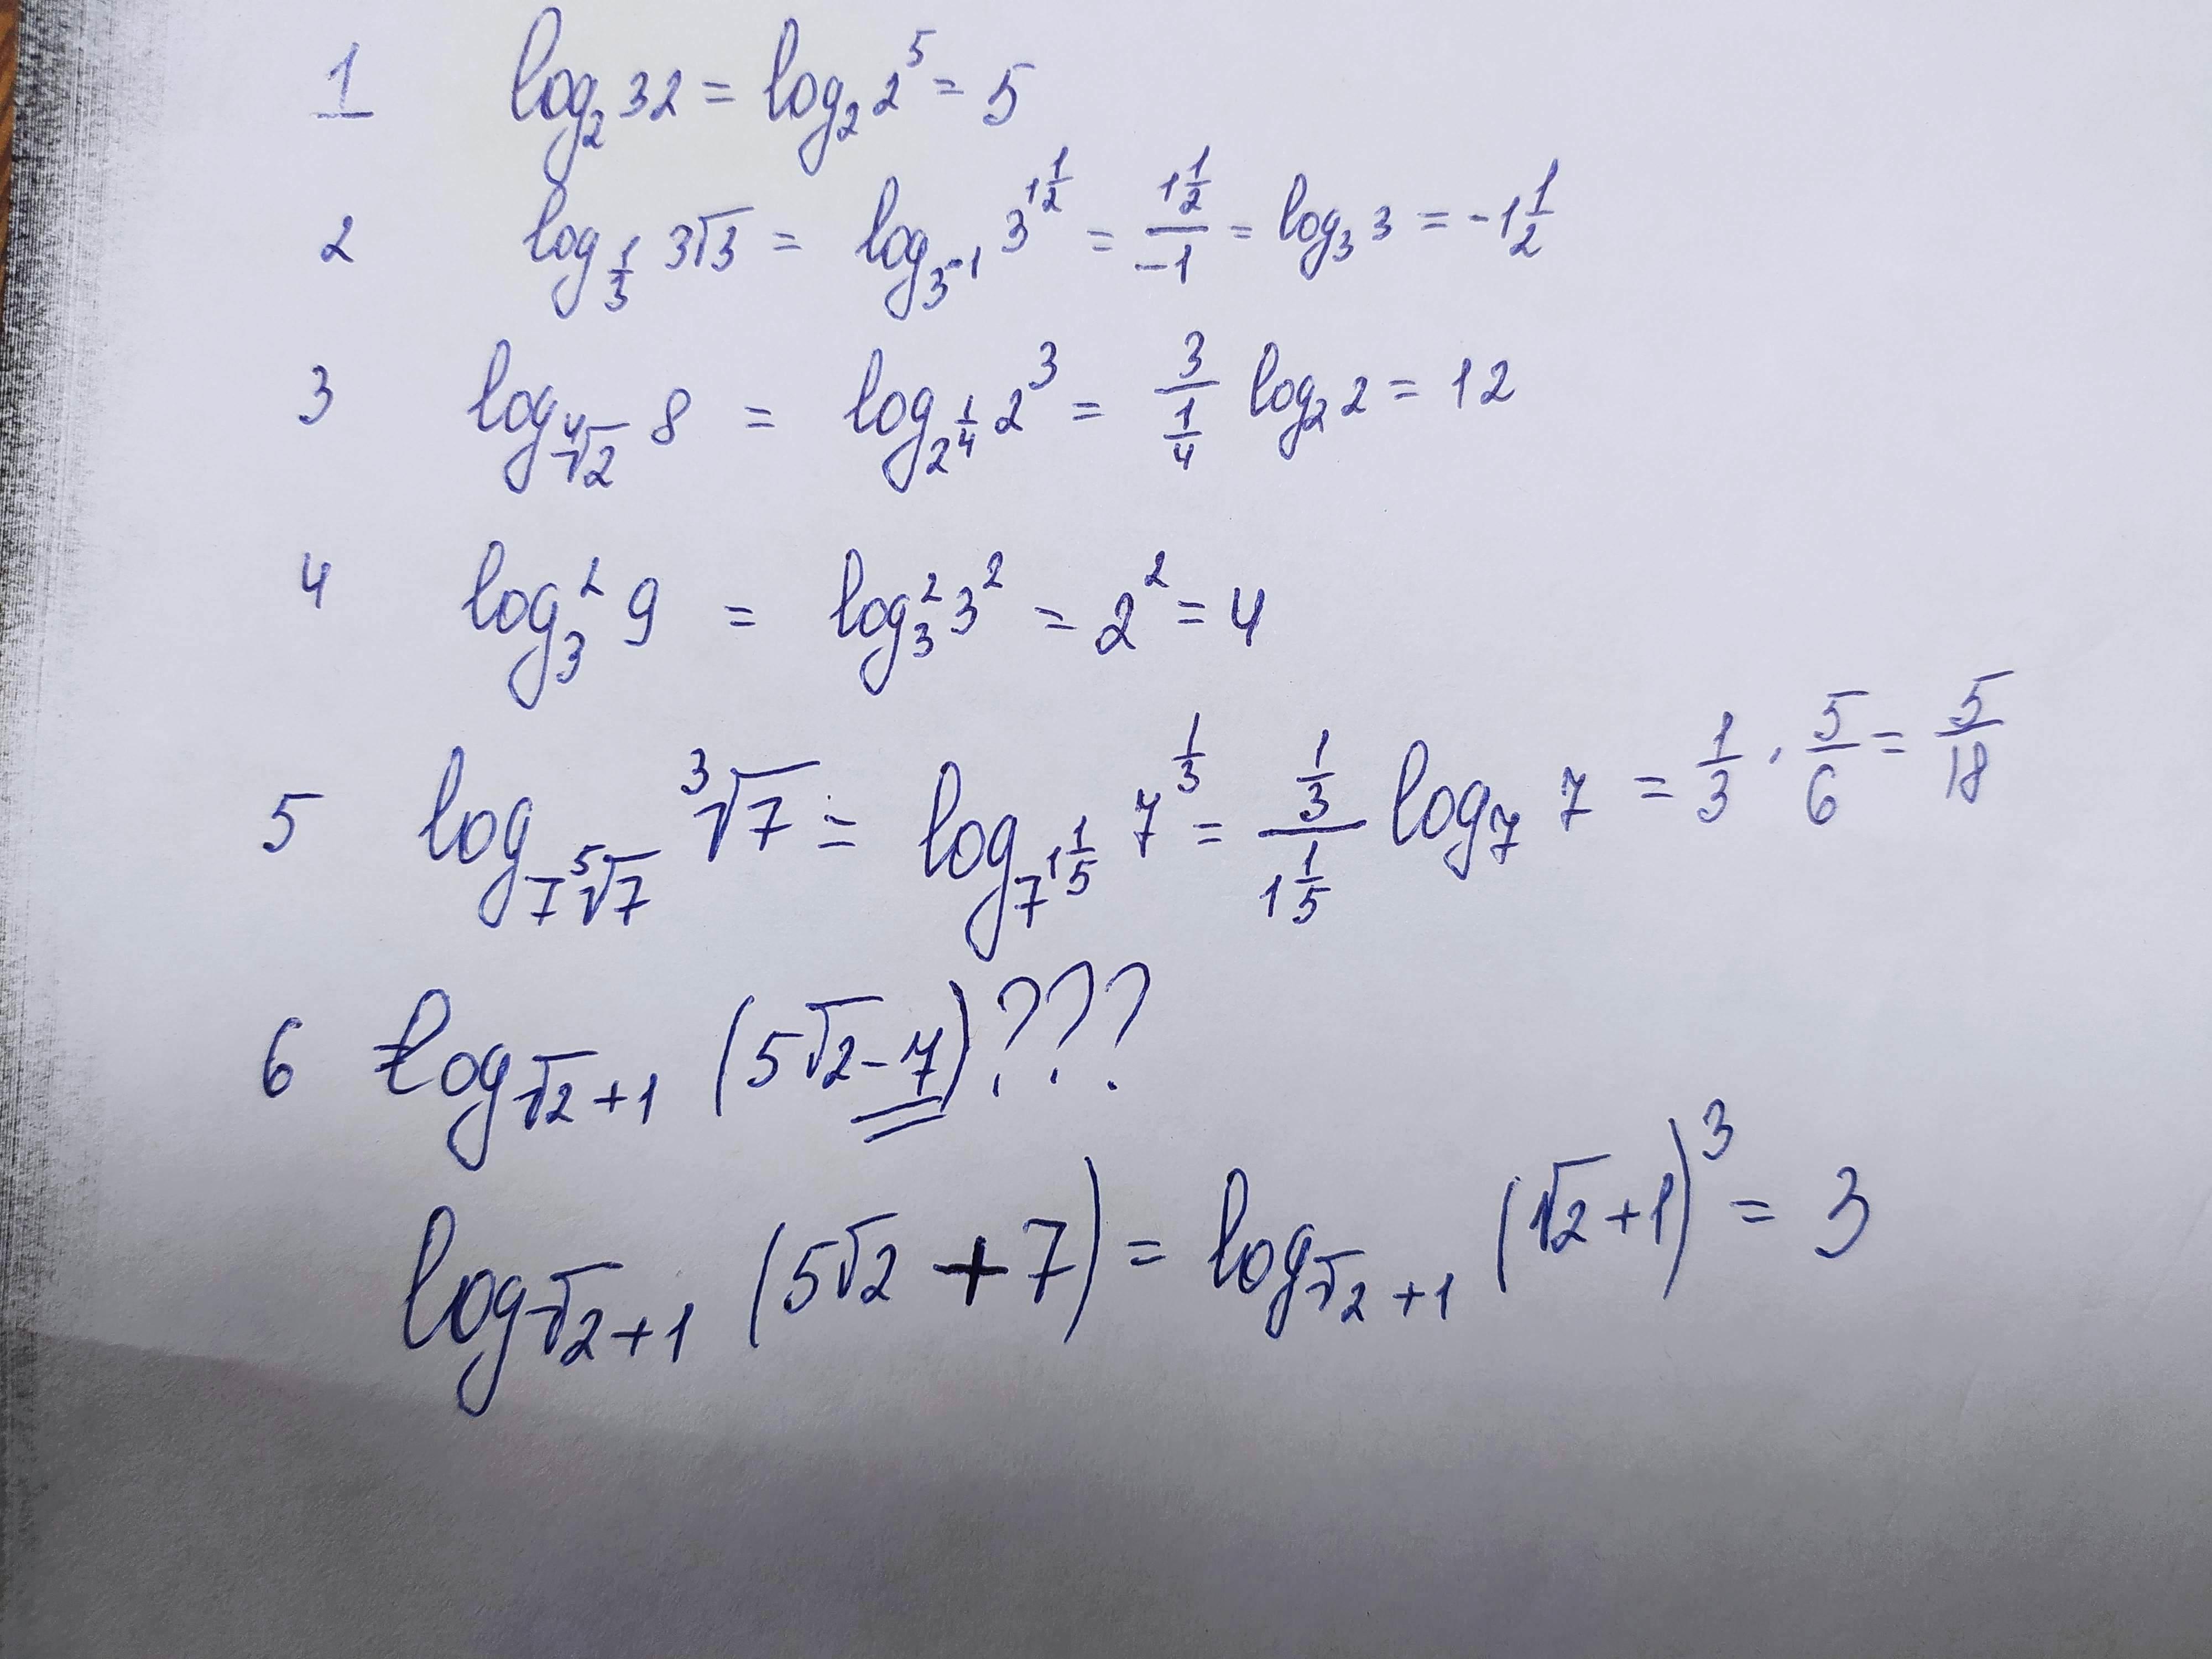 1 log₂ 32 = log₂ 2⁵ = 5
2 log_{1/3} 3√3 = log_{3⁻¹} 3^{1 1/2} = (1 1/2)/(-1) = log₃ 3 = -1 1/2
3 log_{⁴√2} 8 = log_{2^{1/4}} 2³ = 3/(1/4) log₂ 2 = 12
4 log₃² 9 = log₃² 3² = 2² = 4
5 log_{7⁵√7} ³√7 = log_{7^{1 1/5}} 7^{1/3} = (1/3)/(1 1/5) log₇ 7 = 1/3 · 5/6 = 5/18
6 log_{√2+1} (5√2-7)???
log_{√2+1} (5√2+7) = log_{√2+1} (√2+1)³ = 3